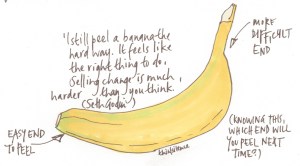 'I still peel a banana the
hard way. It feels like
the right thing to do.
Selling change is much
harder than you think.'
(Seth Godin)
MORE
DIFFICULT
END
EASY END
TO PEEL
(KNOWING THIS,
WHICH END WILL
YOU PEEL NEXT
TIME?)